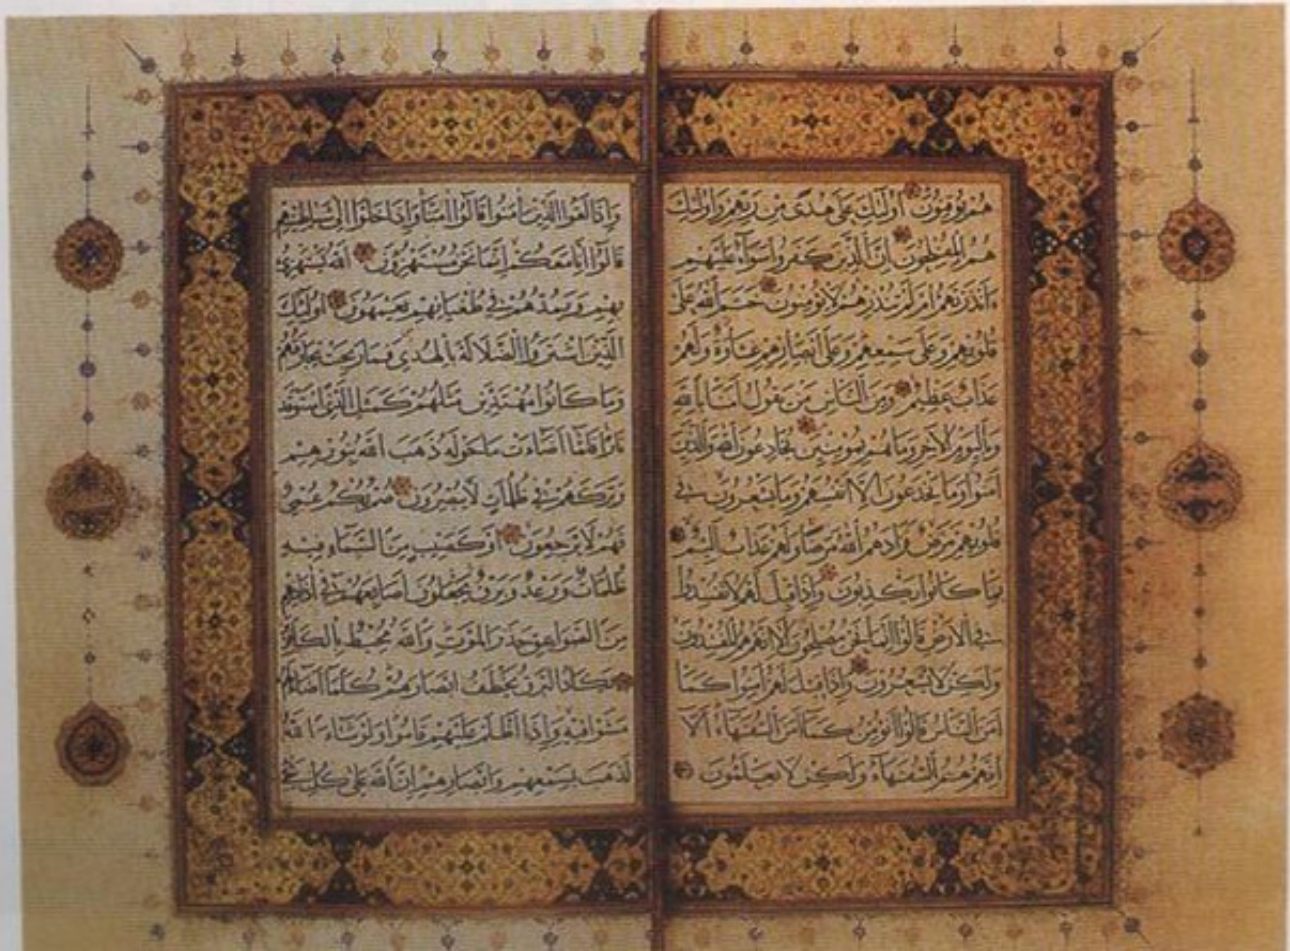 هُمْ يُوقِنُونَ أُولَٰئِكَ عَلَىٰ هُدًى مِنْ رَبِّهِمْ وَأُولَٰئِكَ
هُمُ الْمُفْلِحُونَ إِنَّ الَّذِينَ كَفَرُوا سَوَاءٌ عَلَيْهِمْ
ءَأَنْذَرْتَهُمْ أَمْ لَمْ تُنْذِرْهُمْ لَا يُؤْمِنُونَ خَتَمَ اللَّهُ عَلَىٰ
قُلُوبِهِمْ وَعَلَىٰ سَمْعِهِمْ وَعَلَىٰ أَبْصَارِهِمْ غِشَاوَةٌ وَلَهُمْ
عَذَابٌ عَظِيمٌ وَمِنَ النَّاسِ مَنْ يَقُولُ آمَنَّا بِاللَّهِ
وَبِالْيَوْمِ الْآخِرِ وَمَا هُمْ بِمُؤْمِنِينَ يُخَادِعُونَ اللَّهَ وَالَّذِينَ
آمَنُوا وَمَا يَخْدَعُونَ إِلَّا أَنْفُسَهُمْ وَمَا يَشْعُرُونَ فِي
قُلُوبِهِمْ مَرَضٌ فَزَادَهُمُ اللَّهُ مَرَضًا وَلَهُمْ عَذَابٌ أَلِيمٌ
بِمَا كَانُوا يَكْذِبُونَ وَإِذَا قِيلَ لَهُمْ لَا تُفْسِدُوا
فِي الْأَرْضِ قَالُوا إِنَّمَا نَحْنُ مُصْلِحُونَ أَلَا إِنَّهُمْ هُمُ الْمُفْسِدُونَ
وَلَٰكِنْ لَا يَشْعُرُونَ وَإِذَا قِيلَ لَهُمْ آمِنُوا كَمَا
آمَنَ النَّاسُ قَالُوا أَنُؤْمِنُ كَمَا آمَنَ السُّفَهَاءُ أَلَا
إِنَّهُمْ هُمُ السُّفَهَاءُ وَلَٰكِنْ لَا يَعْلَمُونَ
وَإِذَا لَقُوا الَّذِينَ آمَنُوا قَالُوا آمَنَّا وَإِذَا خَلَوْا إِلَىٰ شَيَاطِينِهِمْ
قَالُوا إِنَّا مَعَكُمْ إِنَّمَا نَحْنُ مُسْتَهْزِءُونَ اللَّهُ يَسْتَهْزِئُ
بِهِمْ وَيَمُدُّهُمْ فِي طُغْيَانِهِمْ يَعْمَهُونَ أُولَٰئِكَ
الَّذِينَ اشْتَرَوُا الضَّلَالَةَ بِالْهُدَىٰ فَمَا رَبِحَتْ تِجَارَتُهُمْ
وَمَا كَانُوا مُهْتَدِينَ مَثَلُهُمْ كَمَثَلِ الَّذِي اسْتَوْقَدَ
نَارًا فَلَمَّا أَضَاءَتْ مَا حَوْلَهُ ذَهَبَ اللَّهُ بِنُورِهِمْ
وَتَرَكَهُمْ فِي ظُلُمَاتٍ لَا يُبْصِرُونَ صُمٌّ بُكْمٌ عُمْيٌ
فَهُمْ لَا يَرْجِعُونَ أَوْ كَصَيِّبٍ مِنَ السَّمَاءِ فِيهِ
ظُلُمَاتٌ وَرَعْدٌ وَبَرْقٌ يَجْعَلُونَ أَصَابِعَهُمْ فِي آذَانِهِمْ
مِنَ الصَّوَاعِقِ حَذَرَ الْمَوْتِ وَاللَّهُ مُحِيطٌ بِالْكَافِرِينَ
يَكَادُ الْبَرْقُ يَخْطَفُ أَبْصَارَهُمْ كُلَّمَا أَضَاءَ لَهُمْ
مَشَوْا فِيهِ وَإِذَا أَظْلَمَ عَلَيْهِمْ قَامُوا وَلَوْ شَاءَ اللَّهُ
لَذَهَبَ بِسَمْعِهِمْ وَأَبْصَارِهِمْ إِنَّ اللَّهَ عَلَىٰ كُلِّ شَيْءٍ